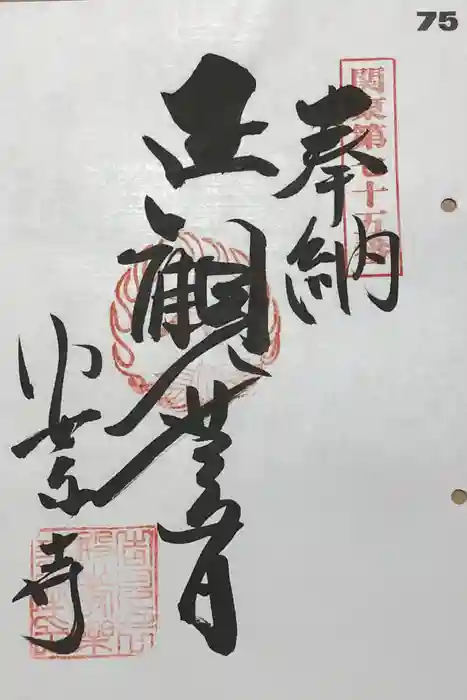 75
関東第七十五番
奉納
正観世音
安楽寺